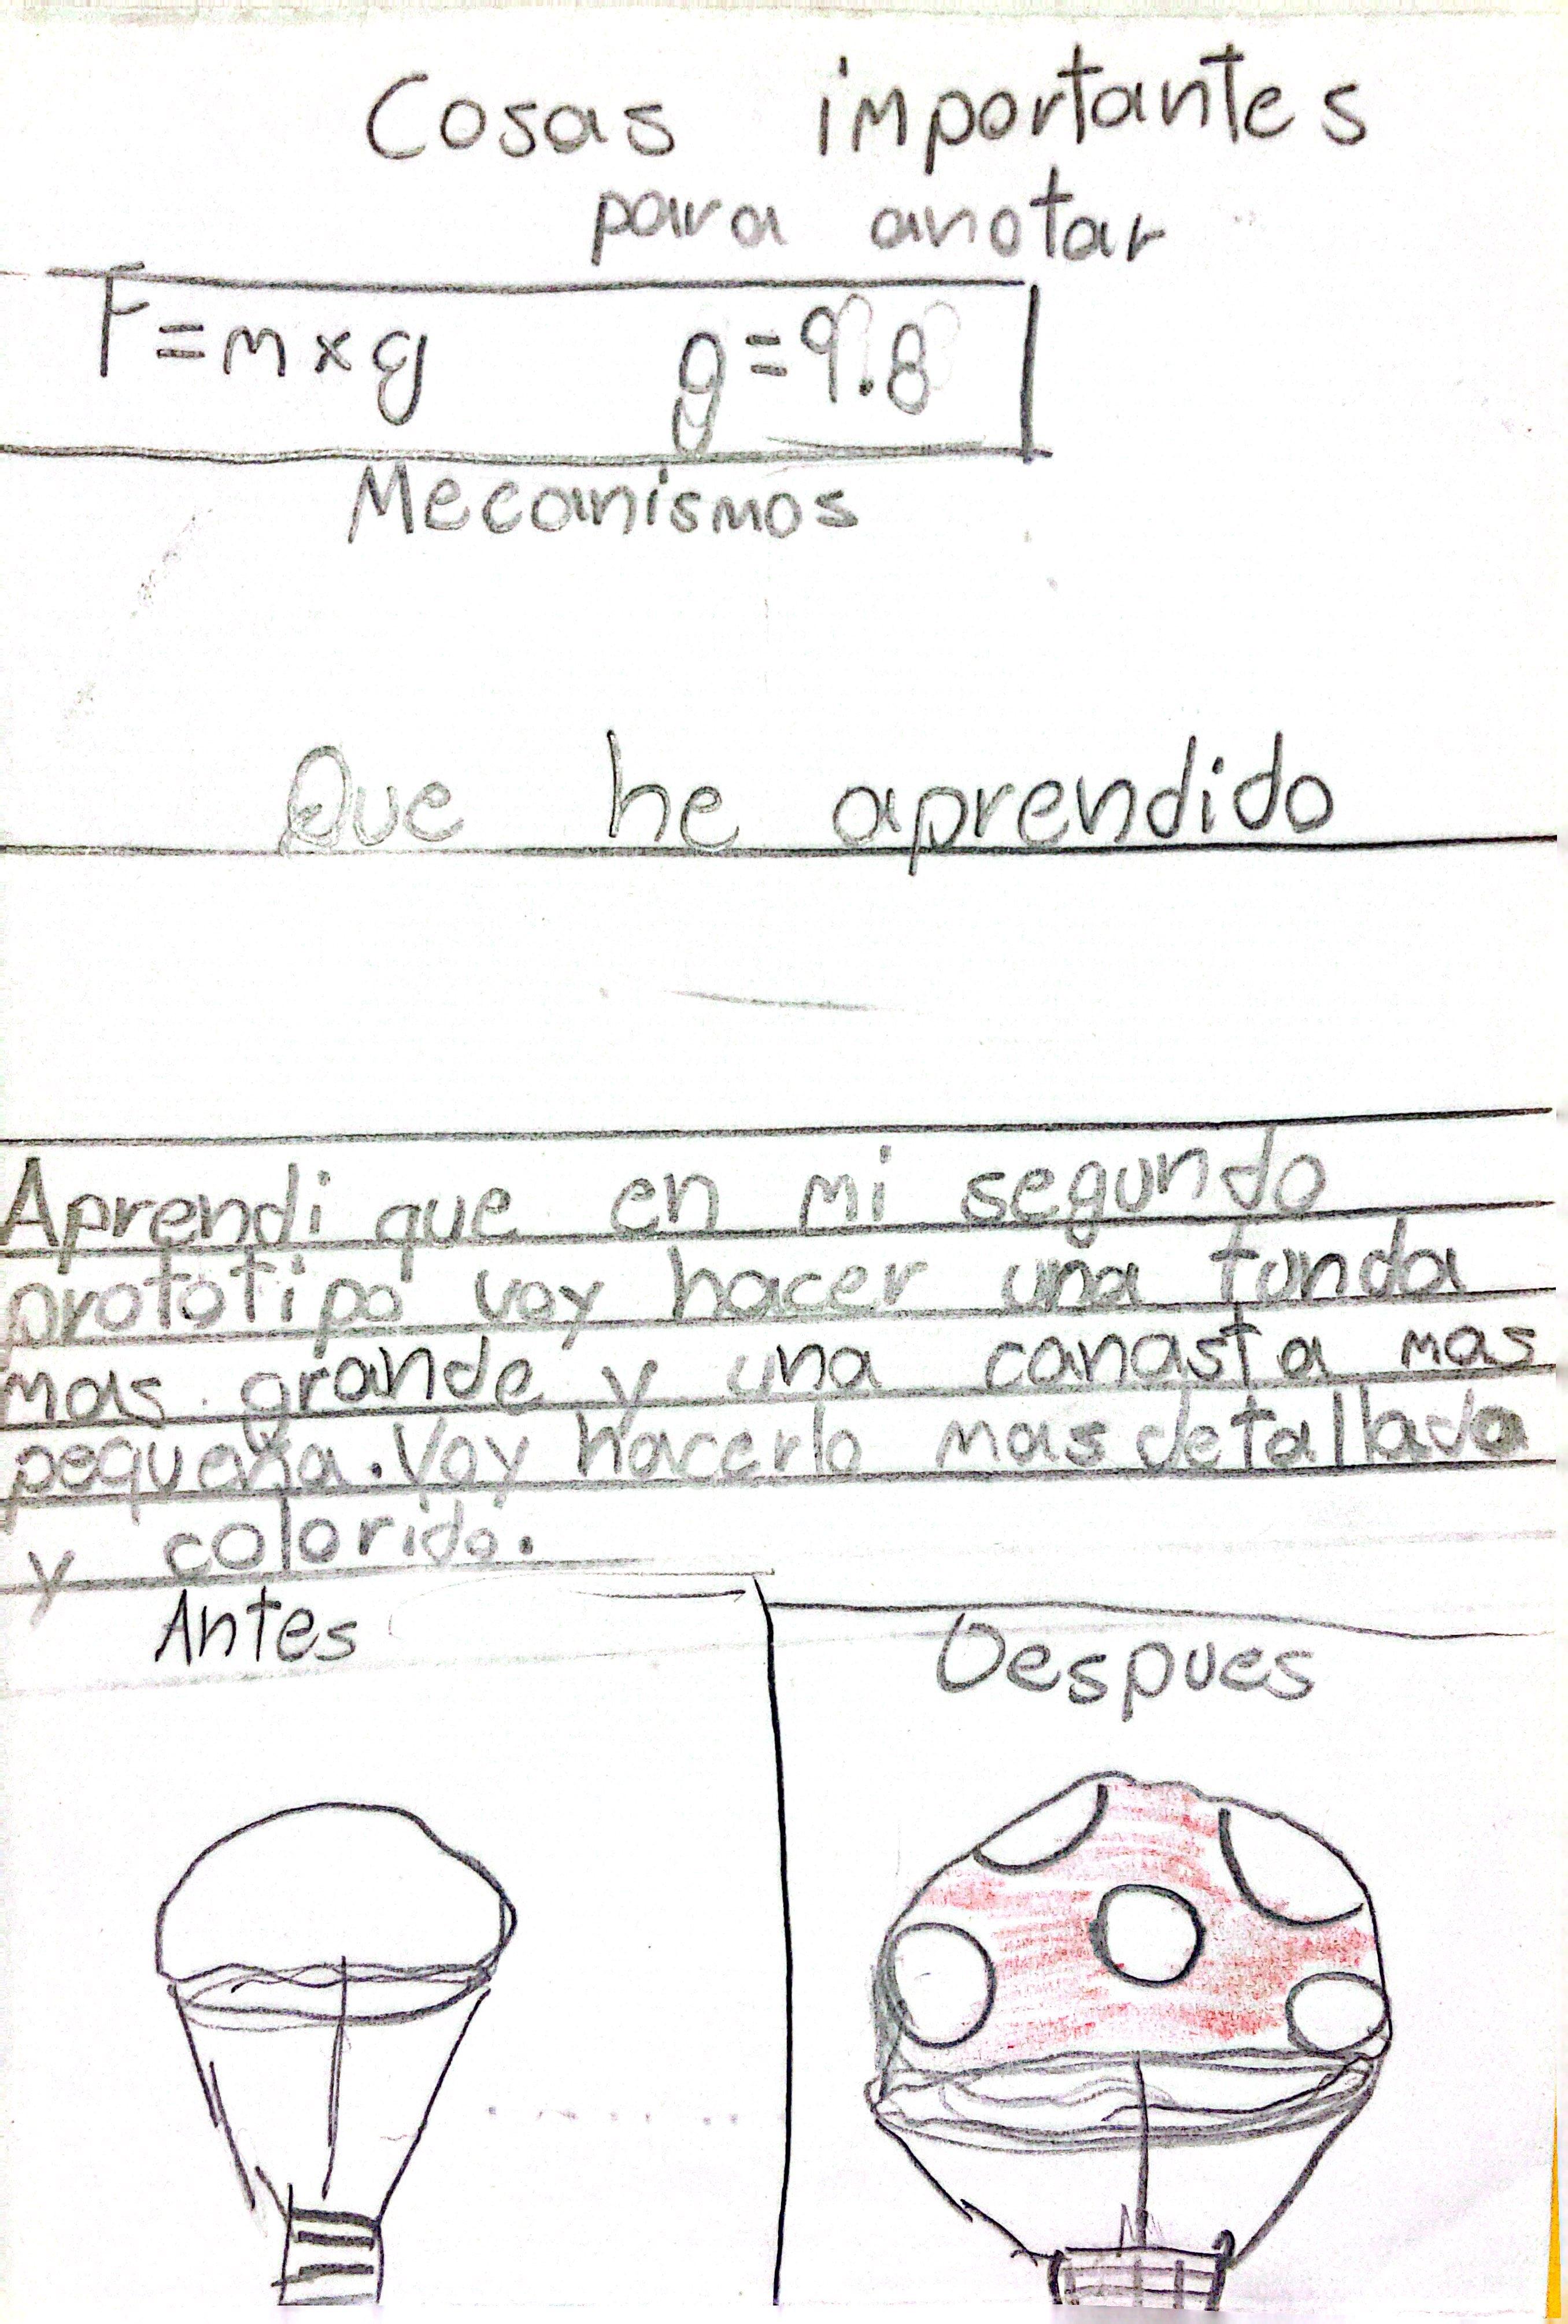 Cosas importantes
para anotar
F=mxg g=9.8
Mecanismos
Que he aprendido
Aprendi que en mi segundo
prototipo voy hacer una funda
mas grande y una canasta mas
pequeña. Voy hacerlo mas detallado
y colorido.
Antes
Despues